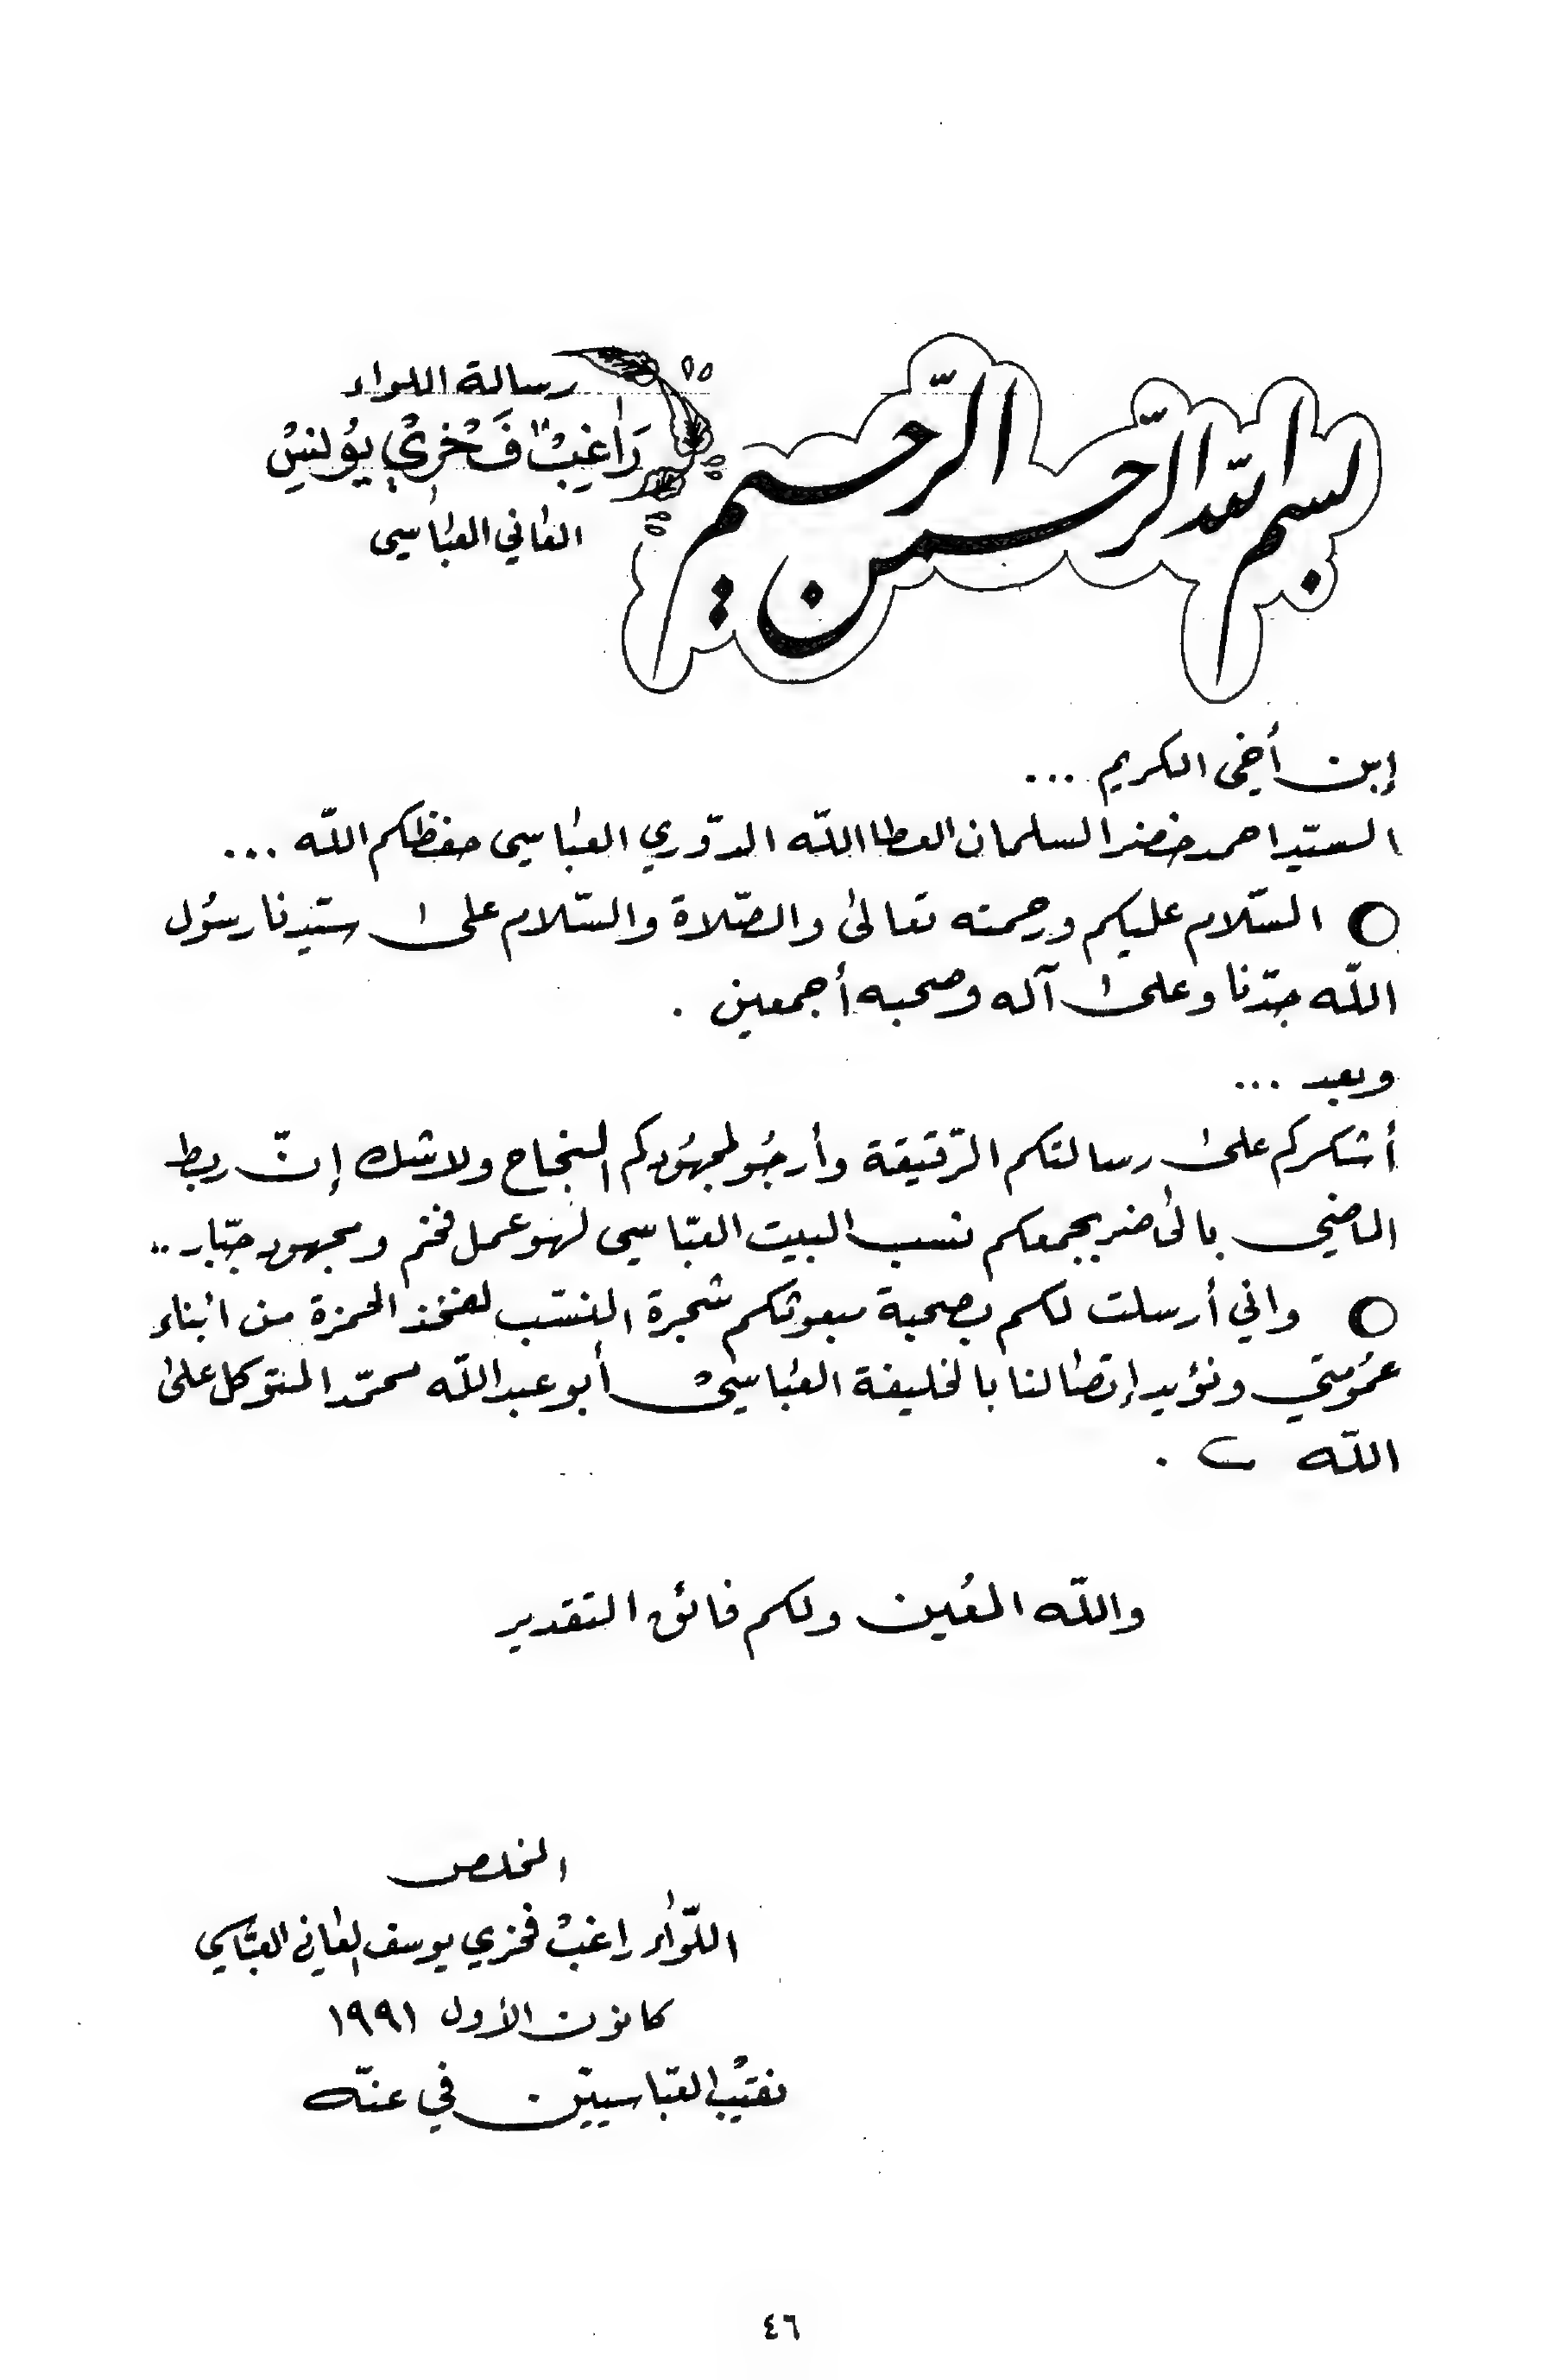 بسم الله الرحمن الرحيم
رسالة اللواء
رَاغِبْ فَخْرِيْ يُولنِسْ
العاني العباسي
إبن أخي الكريم ...
السيّد احمد خضر السلمان العطا الله الدّوري العباسي حفظكم الله ...
السّلام عليكم ورحمته تعالى والصّلاة والسّلام على سيّدنا رسُول
الله جدّنا وعلى آله وصحبه أجمعين .
وبعد ...
أشكركم على رسالتكم الرّقيقة وأرجُو لمجهُودكم النجاح ولاشك إنّ ربط
الماضي بالحاضر بجمعكم نسب البيت العبّاسي لهو عمل فخم ومجهود جبّار ..
واني أرسلت لكم بصحبة مبعوثكم شجرة النسّب لفخذ الحمزة من ابناء
عمُومتي ونؤيد إتصالنا بالخليفة العباسيْ أبو عبدالله محمّد المتوكل على
الله .
والله المُعين ولكم فائق التقدير
المخلص
اللّواء راغبْ فخري يوسف العاني العبّاسي
كانون الأول ١٩٩١
نقيْب العبّاسييّن في عنّه
٤٦